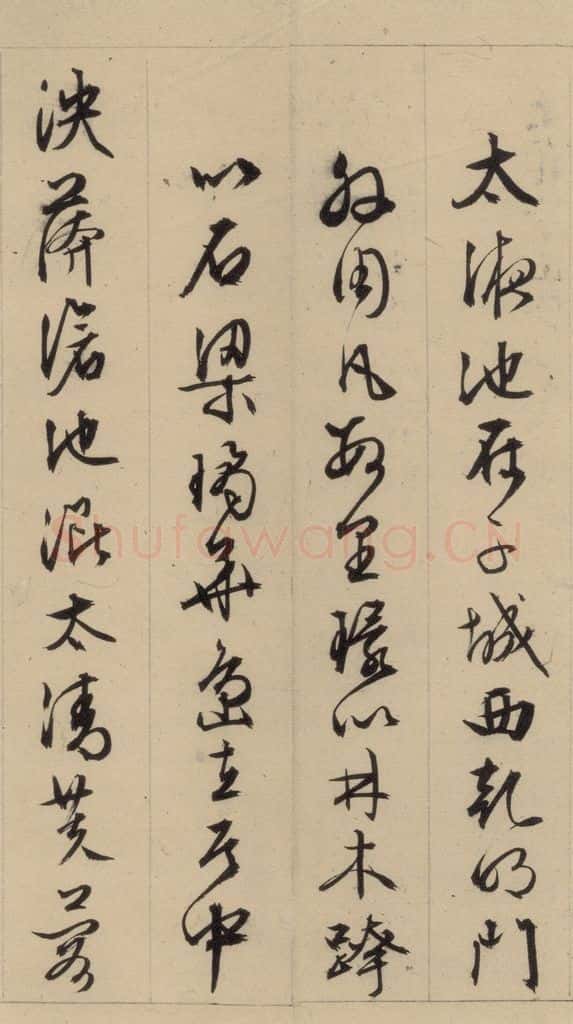 太液池在子城西乾明門
外周凡數里環以林木跨
以石梁瓊華島在其中
泱漭滄池混太清芙蓉
Shufawang.CN